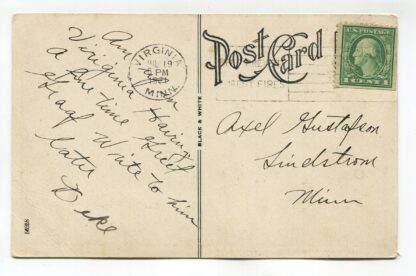 Am in
Virginia Having
a fine time Tell
Write to him
later
Deke
VIRGINIA
JUL 19
PM
1921
MINN.
Post Card
BLACK & WHITE
U.S. POSTAGE
1 CENT 1
Axel Gustafson
Lindstrom
Minn